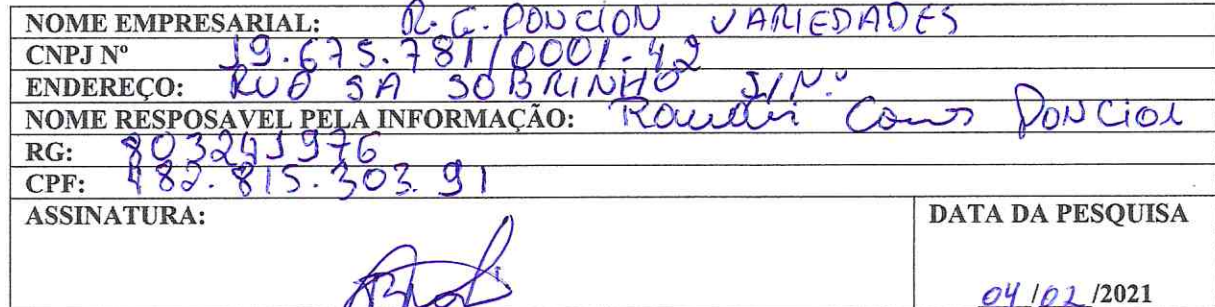 NOME EMPRESARIAL: R. G. PONCION VARIEDADES
CNPJ Nº 19.675.781/0001-42
ENDEREÇO: RUA SA SOBRINHO S/Nº
NOME RESPOSAVEL PELA INFORMAÇÃO: PONCION
RG:
CPF: 482.815.303.91
ASSINATURA: DATA DA PESQUISA
04/02/2021